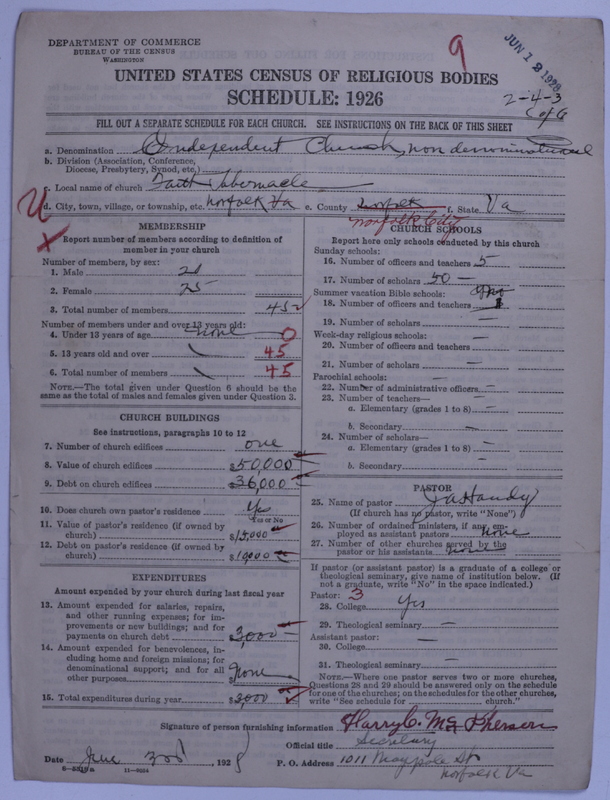 DEPARTMENT OF COMMERCE
BUREAU OF THE CENSUS
WASHINGTON
9
JUN 12 1928
UNITED STATES CENSUS OF RELIGIOUS BODIES
SCHEDULE: 1926
2-4-3
FILL OUT A SEPARATE SCHEDULE FOR EACH CHURCH. SEE INSTRUCTIONS ON THE BACK OF THIS SHEET
a. Denomination Independent Church, non denominational
b. Division (Association, Conference, Diocese, Presbytery, Synod, etc.)
c. Local name of church Faith Tabernacle
d. City, town, village, or township, etc. Norfolk Va e. County Norfolk f. State Va
Norfolk City
MEMBERSHIP
Report number of members according to definition of member in your church
Number of members, by sex:
1. Male 20
2. Female 25
3. Total number of members 45
Number of members under and over 13 years old:
4. Under 13 years of age none 0
5. 13 years old and over 45
6. Total number of members 45
NOTE.—The total given under Question 6 should be the same as the total of males and females given under Question 3.
CHURCH BUILDINGS
See instructions, paragraphs 10 to 12
7. Number of church edifices one
8. Value of church edifices $50,000
9. Debt on church edifices $36,000
10. Does church own pastor's residence Yes
Yes or No
11. Value of pastor's residence (if owned by church) $15,000
12. Debt on pastor's residence (if owned by church) $10,000
EXPENDITURES
Amount expended by your church during last fiscal year
13. Amount expended for salaries, repairs, and other running expenses; for improvements or new buildings; and for payments on church debt $3,000
14. Amount expended for benevolences, including home and foreign missions; for denominational support; and for all other purposes $None
15. Total expenditures during year $3,000
CHURCH SCHOOLS
Report here only schools conducted by this church
Sunday schools:
16. Number of officers and teachers 5
17. Number of scholars 50
Summer vacation Bible schools:
18. Number of officers and teachers
19. Number of scholars —
Week-day religious schools: —
20. Number of officers and teachers
21. Number of scholars —
Parochial schools: —
22. Number of administrative officers —
23. Number of teachers—
a. Elementary (grades 1 to 8) —
b. Secondary —
24. Number of scholars—
a. Elementary (grades 1 to 8) —
b. Secondary —
PASTOR
25. Name of pastor Handy
(If church has no pastor, write "None")
26. Number of ordained ministers, if any, employed as assistant pastors none
27. Number of other churches served by the pastor or his assistants none
If pastor (or assistant pastor) is a graduate of a college or theological seminary, give name of institution below. (If not a graduate, write "No" in the space indicated.)
Pastor: 3
28. College Yes
29. Theological seminary —
Assistant pastor: —
30. College
31. Theological seminary —
NOTE.—Where one pastor serves two or more churches, Questions 28 and 29 should be answered only on the schedule for one of the churches; on the schedules for the other churches, write "See schedule for church."
Signature of person furnishing information Harry C. McPherson
Official title Secretary
Date June 3rd, 1928 P. O. Address 1011 Maypole St
Norfolk Va
11—8634